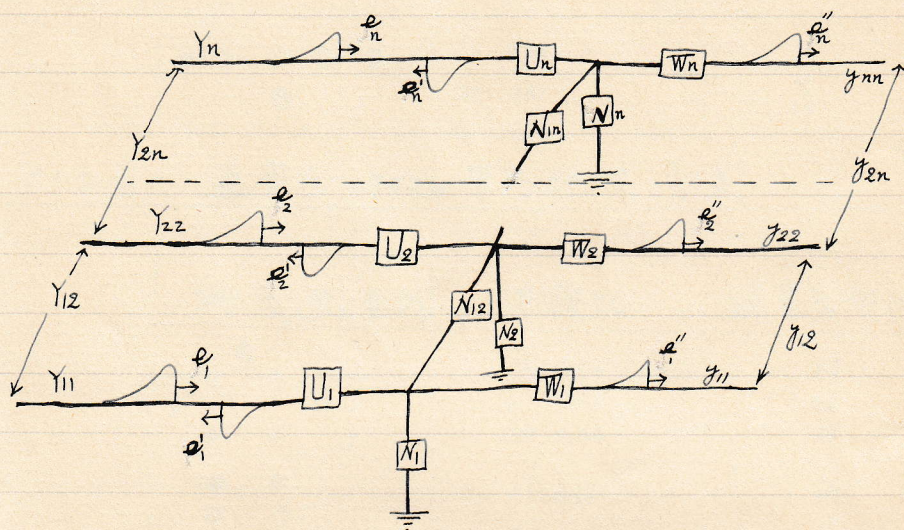 Yn en e'n Un Wn e''n ynn
N1n Nn
Y2n y2n
Y22 e2 e'2 U2 W2 e''2 y22
Y12 N12 N2 y12
Y11 e1 e'1 U1 W1 e''1 y11
N1